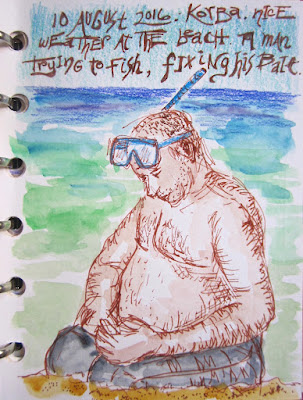 10 AUGUST 2016. KORBA. NICE
WEATHER AT THE BEACH A MAN
TRYING TO FISH, FIXING his BAIT.